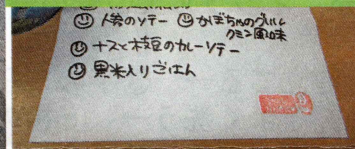 人参のソテー かぼちゃのグリル
クミン風味
ナスと枝豆のカレーソテー
黒米入りごはん